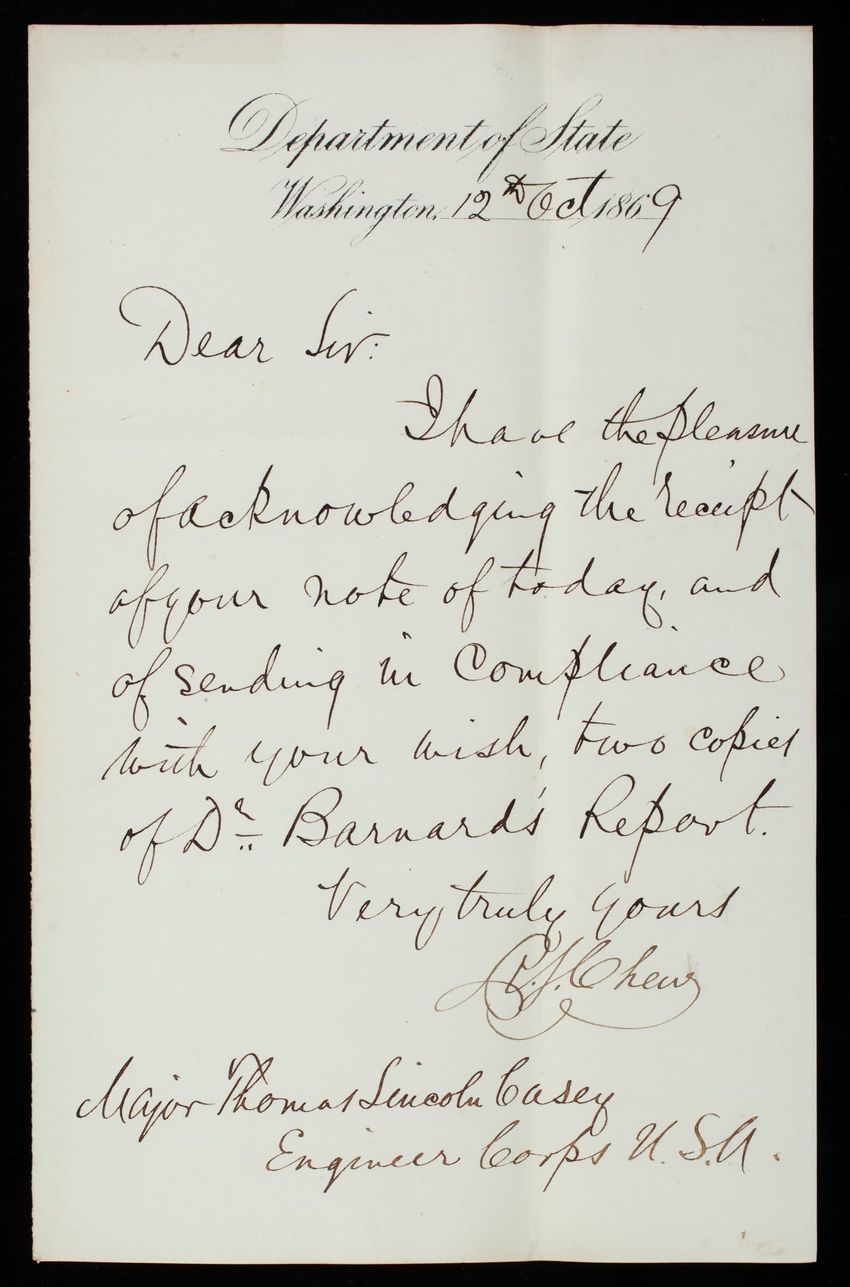 Department of State
Washington, 12th Oct 1869
Dear Sir:
I have the pleasure
of acknowledging the receipt
of your note of today, and
of sending in compliance
with your wish, two copies
of Dr. Barnard's Report.
Very truly yours
R.S. Chew
Major Thomas Lincoln Casey
Engineer Corps U.S.A.